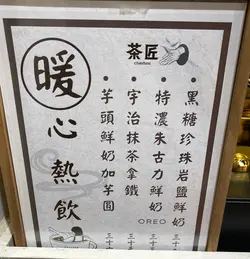 茶匠
暖心熱飲
• 黑糖珍珠岩鹽鮮奶
• 特濃朱古力鮮奶
OREO
• 宇治抹茶拿鐵
• 芋頭鮮奶加芋圓
三十
三十
三十
三十